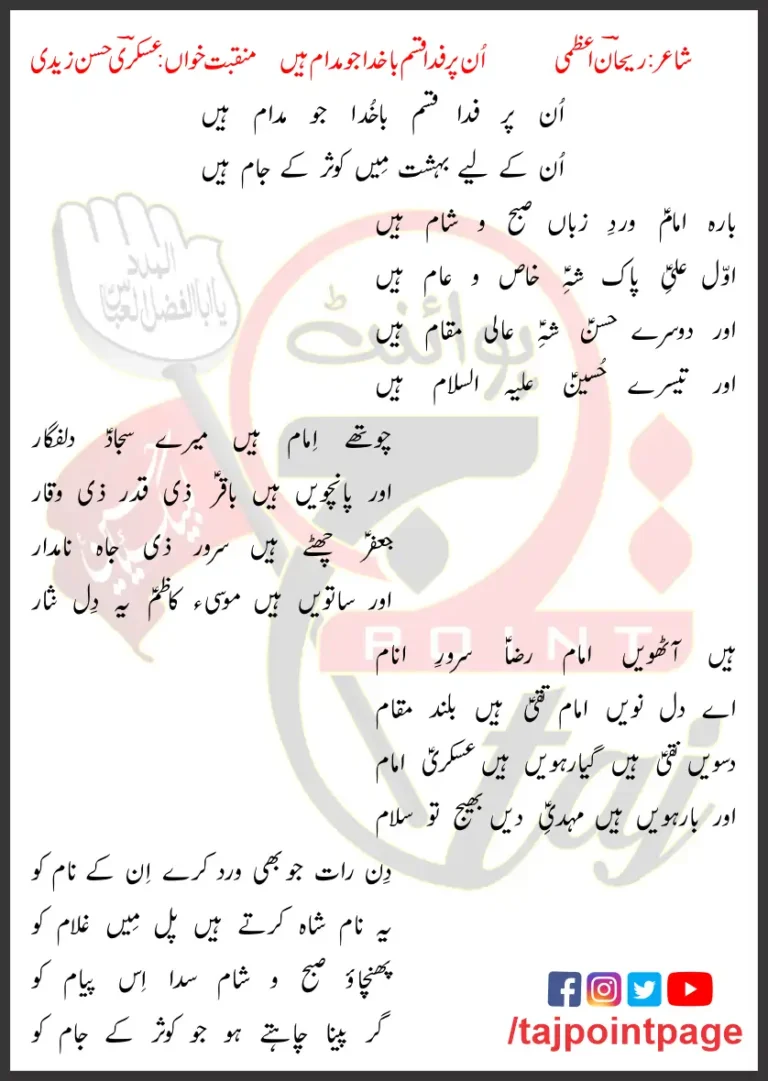 شاعر: ریحانؔ اعظمی اُن پر فدا قسم باخدا جو مدام ہیں منقبت خواں: عسکریؔ حسن زیدی
اُن پر فدا قسم باخُدا جو مدام ہیں
اُن کے لیے بہشت مِیں کوثر کے جام ہیں
بارہ امامؑ وردِ زباں صبح و شام ہیں
اوّل علیؑ پاک شہِؑ خاص و عام ہیں
اور دوسرے حسنؑ شہِؑ عالی مقام ہیں
اور تیسرے حُسینؑ علیہ السلام ہیں
چوتھے اِمام ہیں میرے سجادؑ دلفگار
اور پانچویں ہیں باقرؑ ذی قدر ذی وقار
جعفرؑ چھٹے ہیں سرور ذی جاہ نامدار
اور ساتویں ہیں موسیٰء کاظمؑ یہ دِل نثار
ہیں آٹھویں امام رضاؑ سرورِ انام
اے دل نویں امام تقیؑ ہیں بلند مقام
دسویں نقیؑ ہیں گیارہویں ہیں عسکریؑ امام
اور بارہویں ہیں مہدیؑ دیں بھیج تو سلام
دِن رات جو بھی ورد کرے اِن کے نام کو
یہ نام شاہ کرتے ہیں پل مِیں غلام کو
پھنچاؤ صبح و شام سدا اِس پیام کو
گر پینا چاہتے ہو جو کوثر کے جام کو
المدد
یا ابا الفضل العباس
پوائنٹ
تاج
لبیک یا حسین
POINT
taj
/tajpointpage